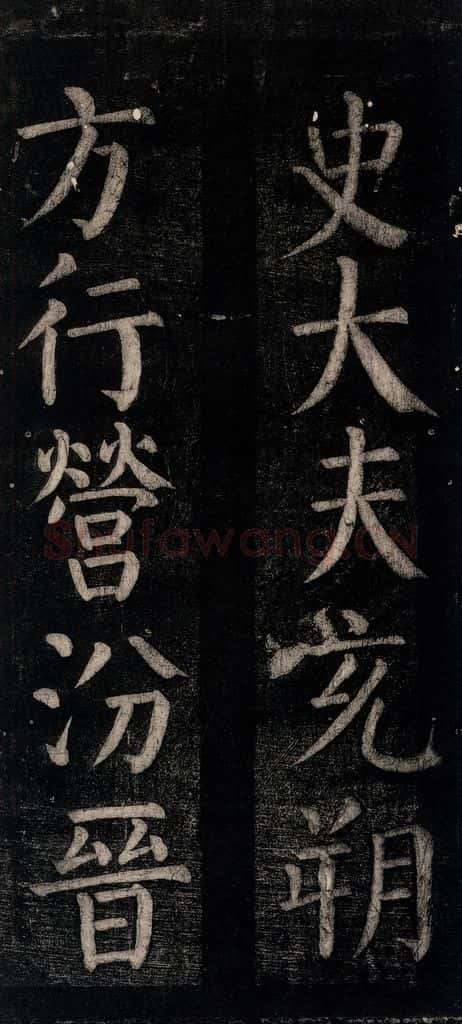 史大夫充朔
方行營汾晉
Shufawang.CN